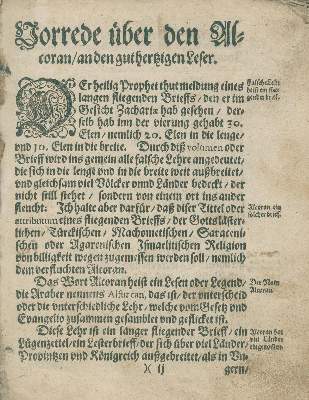 Vorrede über den Al-
coran/ an den guthertzigen Leser.
DEr heilig Prophet thut meldung eines
langen fliegenden Brieffs/ den er im
Gesicht Zachariæ hab gesehen/ der-
selb hab inn der vierung gehabt 30.
Elen/ nemlich 20. Elen in die lenge/
vnd 10. Elen in die breite. Durch diß volumen oder
Brieff wird ins gemein alle falsche Lehre angedeutet/
die sich in die lengt vnd in die breite weit außbreitet/
vnd gleichsam viel Völcker vnnd Länder bedeckt/ der
nicht still stehet/ sondern von einem ort ins ander
fleucht: Ich halte aber darfür/ daß diser Tittel oder
attributum eines fliegenden Brieffs/ der Gottslåster-
lichen/ Türckischen/ Machometischen/ Saraceni-
schen oder Agarenischen Ismaelitischen Religion
von billigkeit wegen zugemessen werden soll/ nemlich
dem verfluchten Alcoran.
Das Wort Alcoran heist ein Lesen oder Legend/
die Araber nennens Alfurcan, das ist/ der vnterscheid
oder die vnterschiedliche Lehr/ welche vom Gesetz vnd
Evangelio zusammen gesamblet vnd geflicket ist.
Diese Lehr ist ein langer fliegender Brieff/ ein
Lügenzettel/ ein Lesterbrieff/ der sich über viel Länder/
Provintzen vnd Königreich außgebreitet/ als in Vn-
)( ij
gern/
Falsche Lehr
Alcoran ein
solcher brieff.
Der Nam
Alcoran.
Alcoran hat
viel Länder
eingenommen